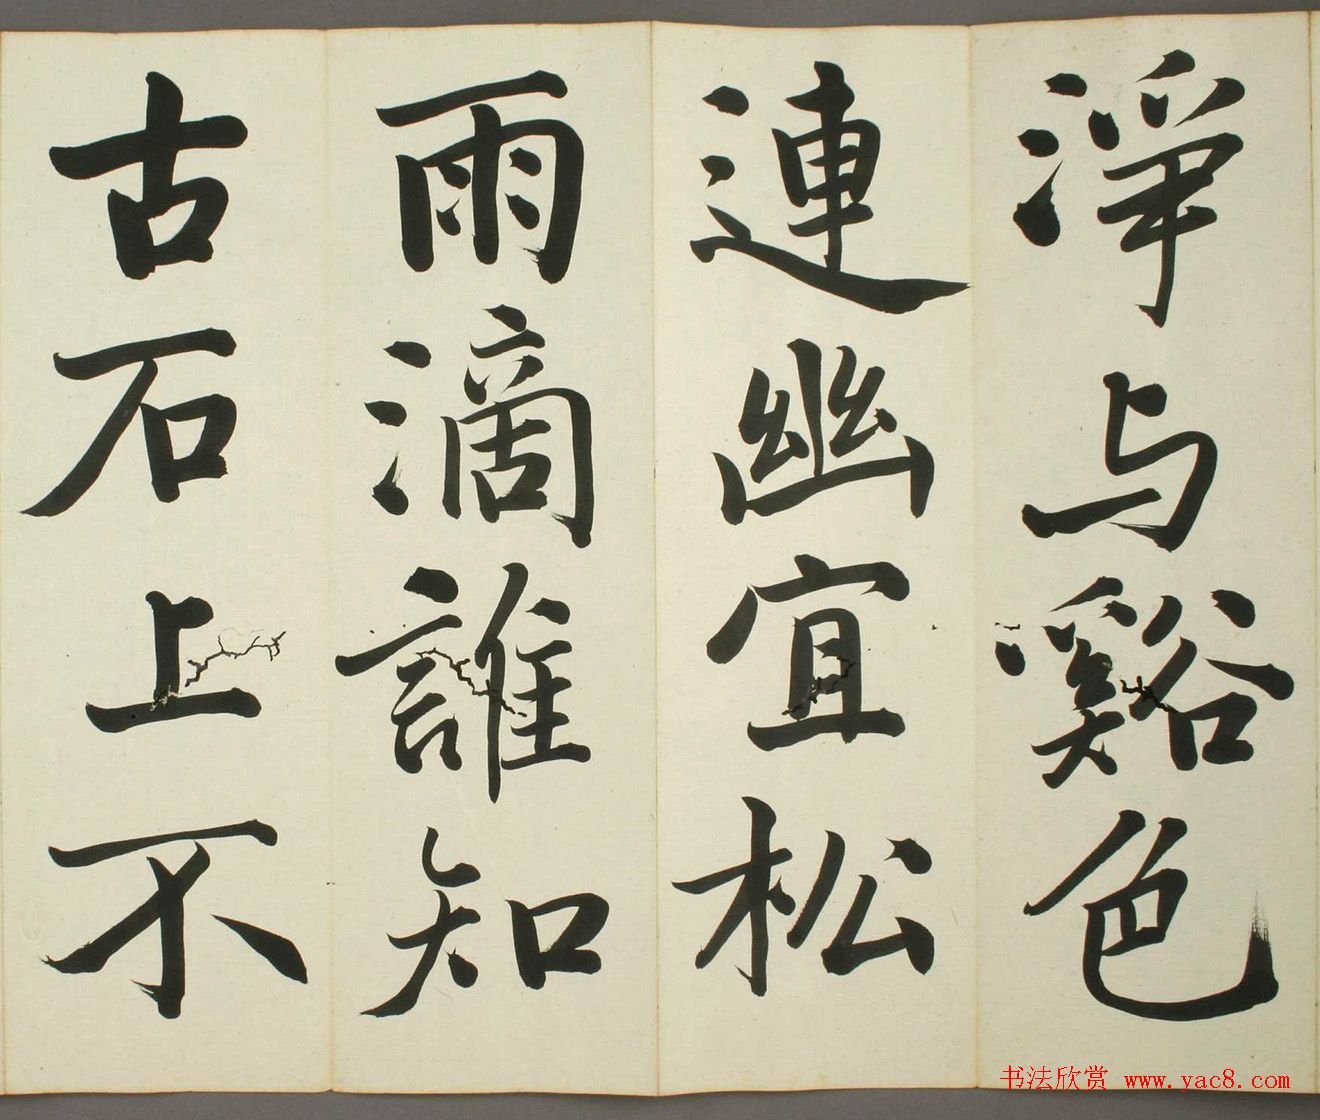 淨与谿色
連幽宜松
雨滴誰知
古石上不
书法欣赏 www.yac8.com